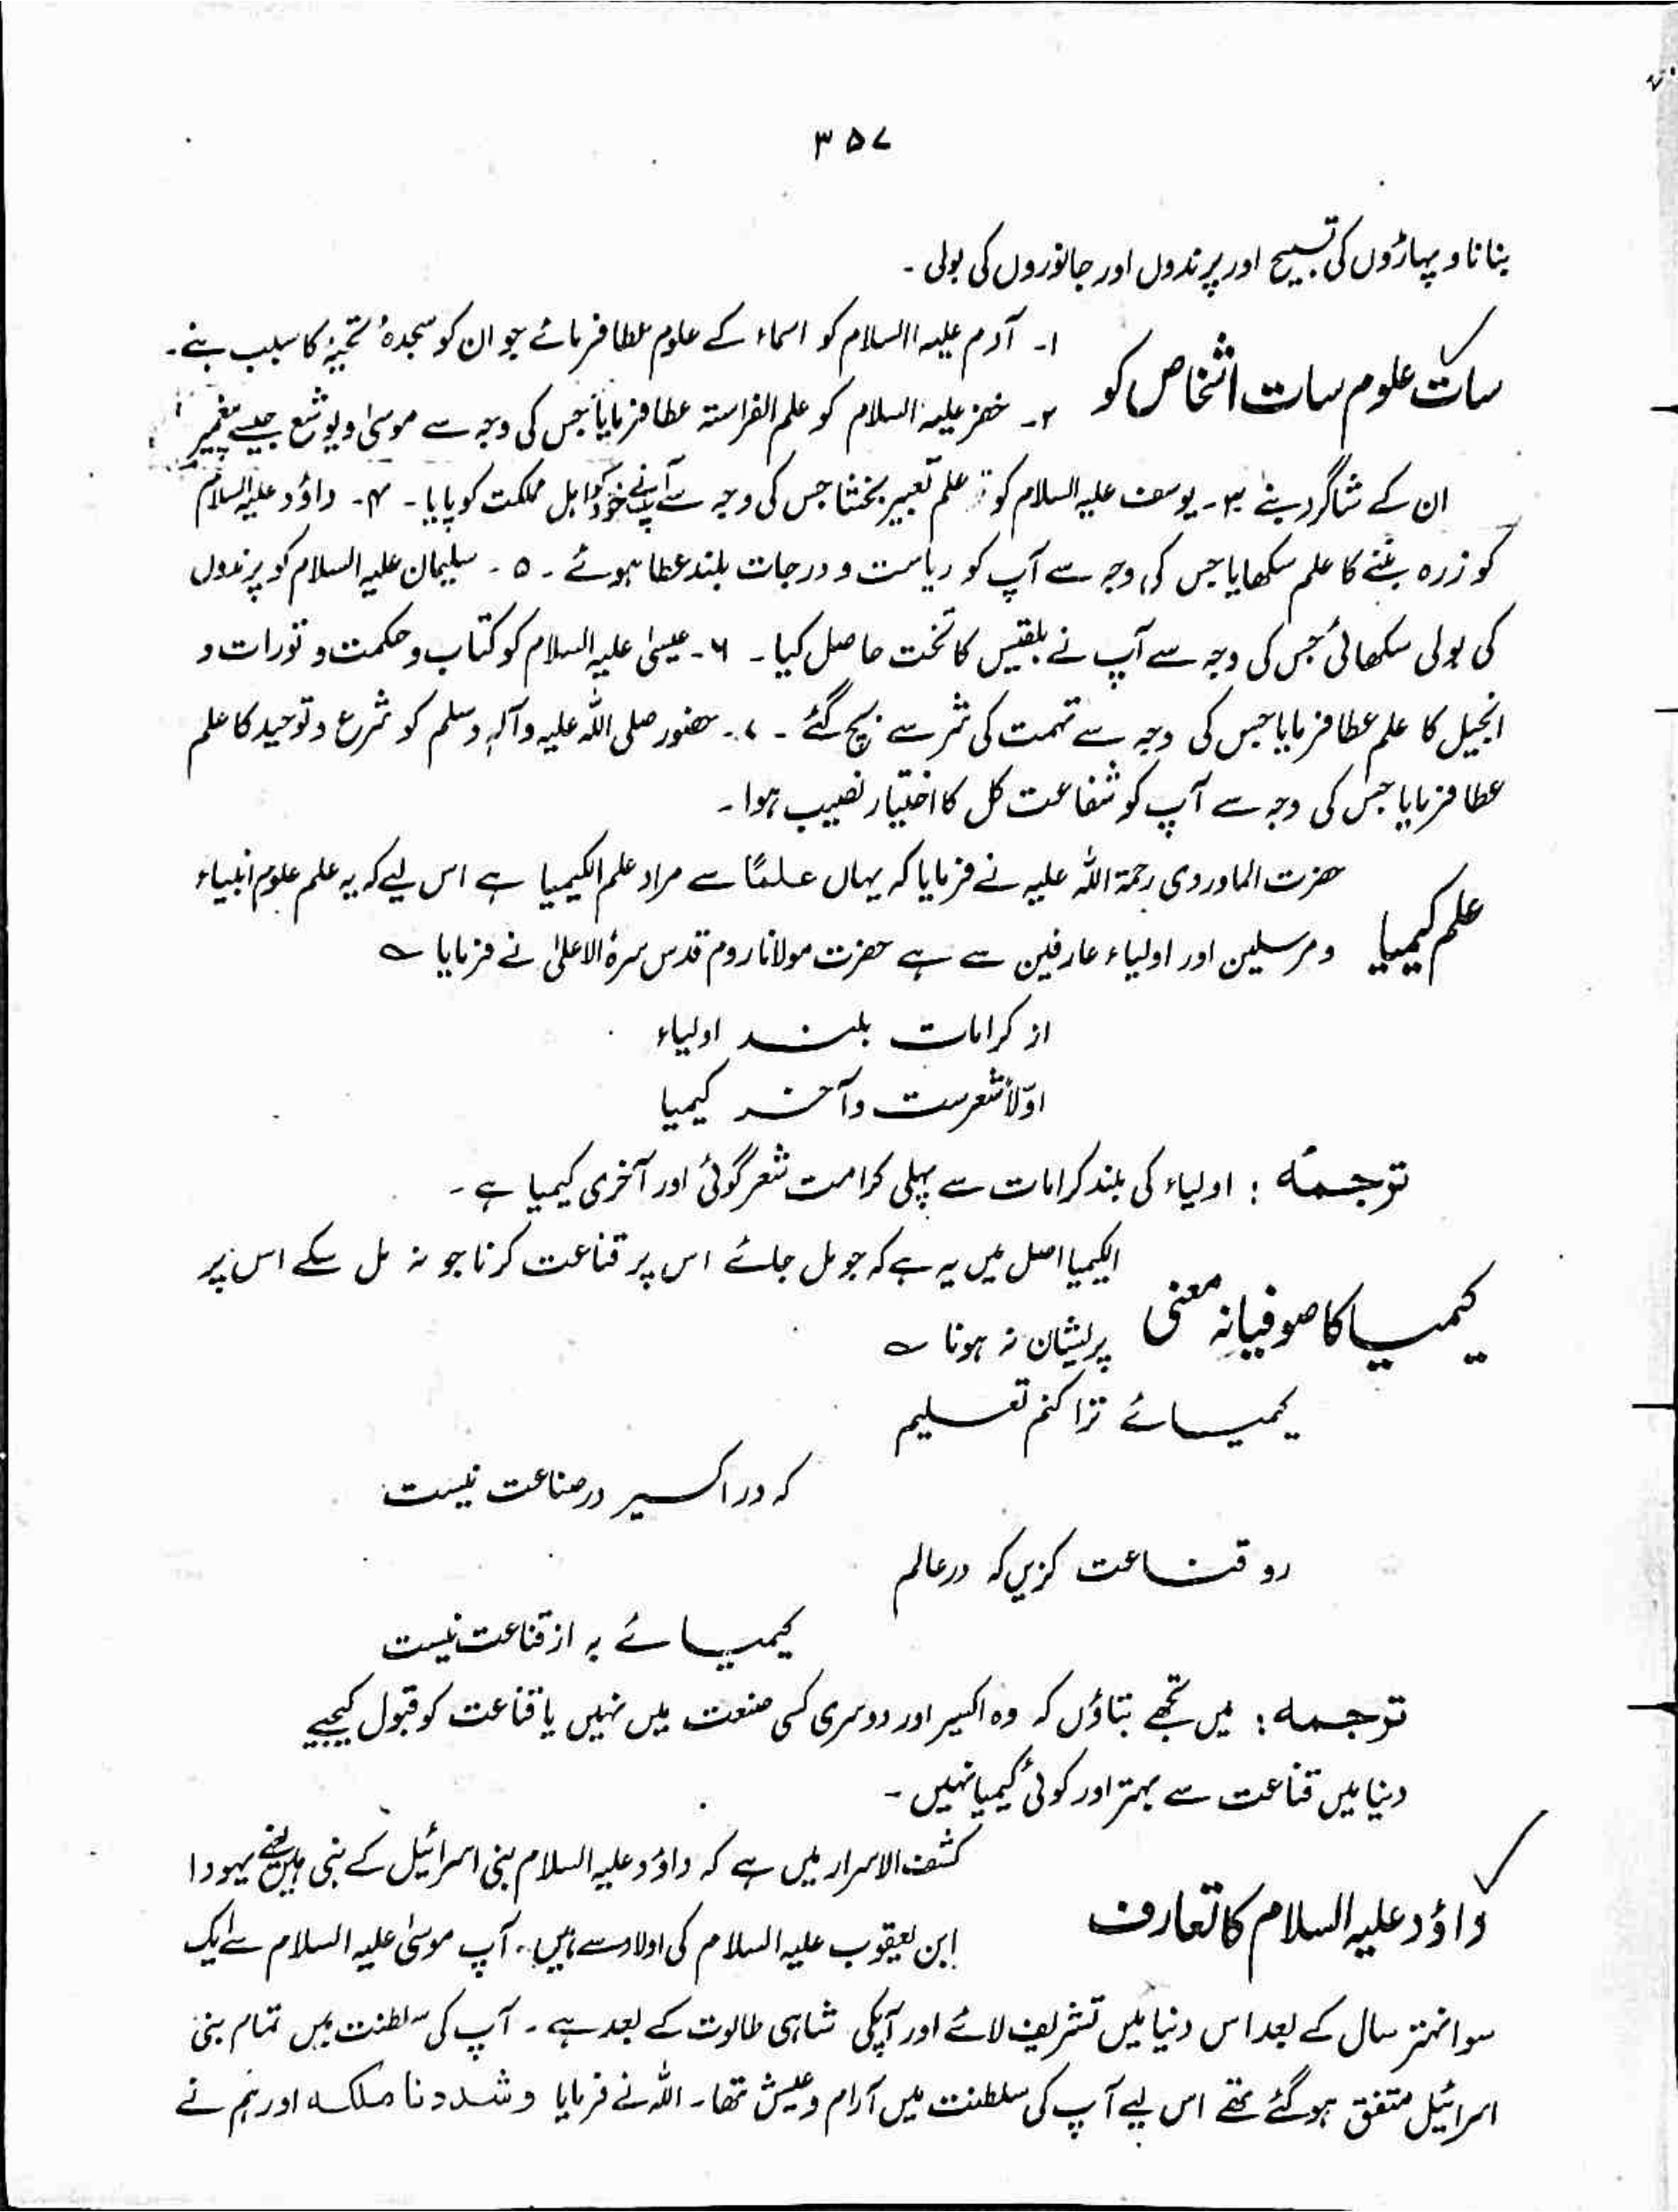 ۳۵۷
بنانا و پہاڑوں کی تسبیح اور پرندوں اور جانوروں کی بولی ۔
سات علوم سات اشخاص کو
۱۔ آدم علیہ االسلام کو اسماء کے علوم عطا فرمائے جو ان کو سجدۂ تحیۃ کا سبب بنے ۔
۲۔ خضر علیہ السلام کو علم الفراستہ عطا فرمایا جس کی وجہ سے موسیٰ و یوشع جیسے پیغمبر
ان کے شاگرد بنے ۳۔ یوسف علیہ السلام کو علم تعبیر بخشا جس کی وجہ سے آپ نے خود کو اہل مملکت کو پایا ۔ ۴۔ داؤد علیہ السلام
کو زرہ بننے کا علم سکھایا جس کی وجہ سے آپ کو ریاست و درجات بلند عطا ہوئے ۔ ۵ ۔ سلیمان علیہ السلام کو پرندوں
کی بولی سکھائی جس کی وجہ سے آپ نے بلقیس کا تخت حاصل کیا ۔ ۶۔ عیسیٰ علیہ السلام کو کتاب و حکمت و تورات و
انجیل کا علم عطا فرمایا جس کی وجہ سے تہمت کی شر سے بچ گئے ۔ ۷۔ حضور صلی اللہ علیہ وآلہ وسلم کو شرع و توحید کا علم
عطا فرمایا جس کی وجہ سے آپ کو شفاعت کل کا اختیار نصیب ہوا ۔
علم کیمیا
حضرت الماوردی رحمۃ اللہ علیہ نے فرمایا کہ یہاں علمًا سے مراد علم الکیمیا ہے اس لیے کہ یہ علم علوم انبیاء
و مرسلین اور اولیاء عارفین سے ہے حضرت مولانا روم قدس سرہٗ الاعلیٰ نے فرمایا ؎
از کرامات بلند اولیاء
اوّلاً شعرست و آخر کیمیا
ترجمہ : اولیاء کی بلند کرامات سے پہلی کرامت شعر گوئی اور آخری کیمیا ہے ۔
کیمیا کا صوفیانہ معنی
الکیمیا اصل میں یہ ہے کہ جو مل جائے اس پر قناعت کرنا جو نہ مل سکے اس پر
پریشان نہ ہونا ؎
کیمیائے ترا کنم تعلیم
کہ در اکسیر و درصناعت نیست
رو قناعت گزیں کہ در عالم
کیمیائے بہ از قناعت نیست
ترجمہ : میں تجھے بتاؤں کہ وہ اکسیر اور دوسری کسی صنعت میں نہیں یا قناعت کو قبول کیجیے
دنیا میں قناعت سے بہتر اور کوئی کیمیا نہیں ۔
داؤد علیہ السلام کا تعارف
کشف الاسرار میں ہے کہ داؤد علیہ السلام بنی اسرائیل کے نبی ہیں یعنی یہودا
ابن یعقوب علیہ السلام کی اولاد سے ہیں ۔ آپ موسیٰ علیہ السلام سے ایک
سو انہتر سال کے بعد اس دنیا میں تشریف لائے اور آپکی شاہی طالوت کے بعد ہے ۔ آپ کی سلطنت میں تمام بنی
اسرائیل متفق ہو گئے تھے اس لیے آپ کی سلطنت میں آرام و عیش تھا ۔ اللہ نے فرمایا وشددنا ملکہ اور ہم نے